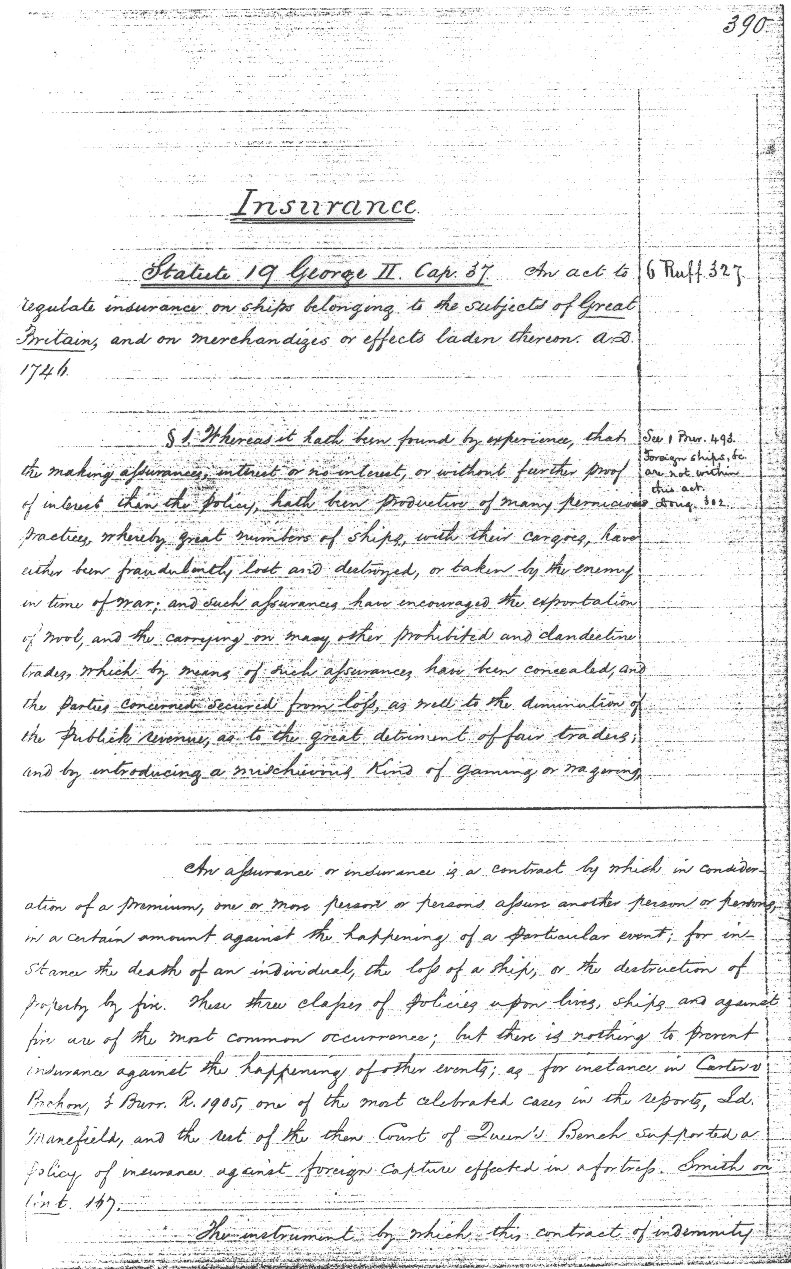 390
Insurance
Statute 19 George II. Cap. 37. An act to
6 Ruff. 327.
regulate insurance on ships belonging to the subjects of Great
Britain, and on merchandizes or effects laden thereon. A.D.
1746.
§ 1. Whereas it hath been found by experience, that
the making assurances, interest or no interest, or without further proof
of interest than the policy, hath been productive of many pernicious
practices, whereby great numbers of ships, with their cargoes, have
either been fraudulently lost and destroyed, or taken by the enemy
in time of war; and such assurances have encouraged the exportation
of wool, and the carrying on many other prohibited and clandestine
trades, which by means of such assurances have been concealed, and
the parties concerned secured from loss, as well to the diminution of
the publick revenue, as to the great detriment of fair traders;
and by introducing a mischievous kind of gaming or wagering,
See 1 Burr. 492.
Foreign ships, &c.
are not within
this act.
Doug. 302.
An assurance or insurance is a contract by which in consider-
ation of a premium, one or more person or persons assure another person or persons,
in a certain amount against the happening of a particular event; for in-
stance the death of an individual, the loss of a ship, or the destruction of
property by fire. These three classes of policies upon lives, ships and against
fire are of the most common occurrence; but there is nothing to prevent
insurance against the happening of other events; as for instance in Carter v
Bochon, 3 Burr. R. 1905, one of the most celebrated cases in the reports, Ld.
Mansfield, and the rest of the then Court of Queen's Bench supported a
policy of insurance against foreign capture effected in a fortress. Smith on
Cont. 167.
The instrument by which this contract of indemnity